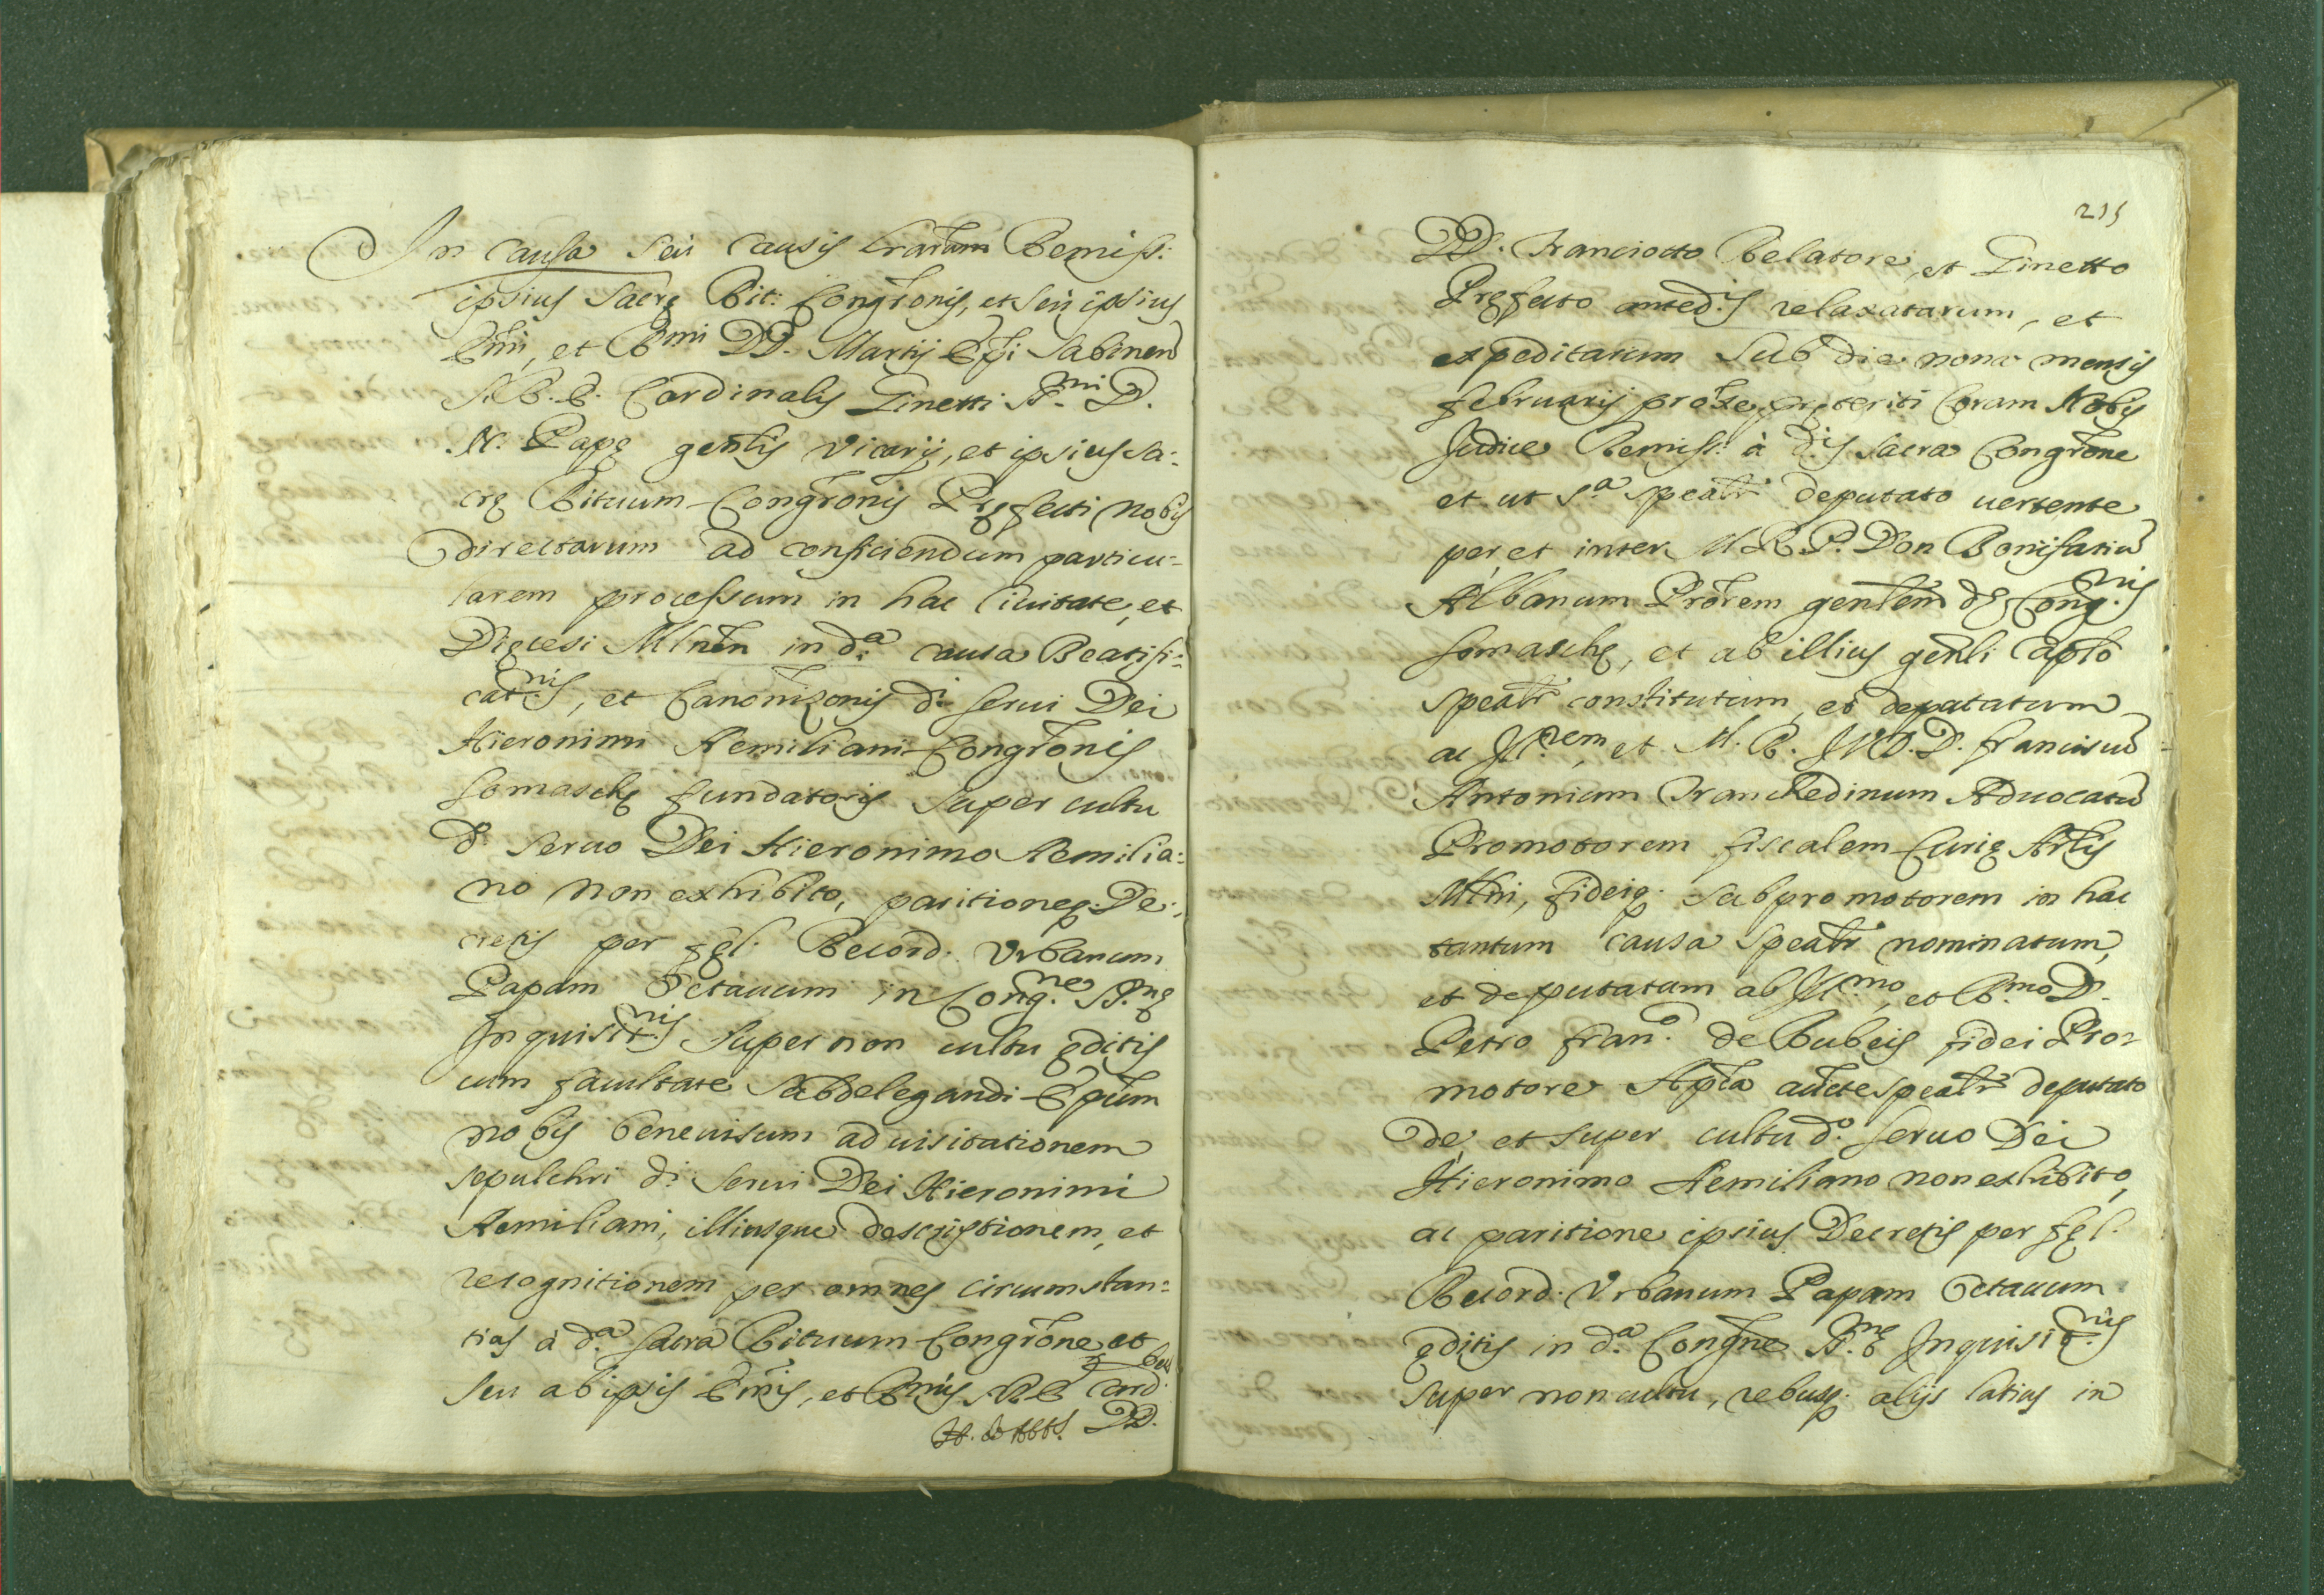 In causa seu causis lrarum Remiss:
ipsius Sacrę Rit: Congr̃onis, et seu ipsius
Em̃i, et R.mi DD. Martij Ep̃i Sabinen̄
S.R.E. Cardinalis Ginetti SS.mi D.
N. Papę gen̄lis Vicarij, et ipsius Sa:
crę Rituum Congr̃onis Pręfecti nobis
directarum ad conficiendum particu:
larem processum in hac Ciuitate, et
Dięcesi Mln̄en in d.a causa Beatifi:
cat.nis, et Canonizonis d.i Serui Dei
Hieronimi Aemiliani Congr̃onis
Somaschę fundatoris super cultu
d.o Seruo Dei Hieronimo Aemilia:
no non exhibito, paritioneq. De:
cretis per fęl. Record. Vrbanum
Papam Octauum in Cong.ne SS.mę
Inquisit.nis super non cultu ęditis
cum facultate subdelegandi Ep̃um
nobis beneuisum ad uisitationem
sepulchri d.i Serui Dei Hieronimi
Aemiliani, illiusque descriptionem, et
recognitionem per omnes circumstan:
tias à d.a Sacra Rituum Congr̃one et
seu ab ipsis Em̃is, et R.mis S.R.E. Card.bus
DD.
215
DD. Franciotto Relatore, et Ginetto
Pręfecto anted.is relaxatarum, et
expeditarum sub die nona mensis
februarij prox̃e pręteriti Coram Nobis
Judice Remiss. à d.is Sacra Congr̃one
et ut s.a spealr̃ deputato uertente
per, et inter M.R.P. Don Bonifatiū
Albanum Pror̃em gen̄lem d.ę Cong.nis
Somaschę, et ab illius gen̄li Caplo
spealr̃ constitutum, et deputatum
ac Ill.rem, et M.R. J.V.D.D. Franciscū
Antonium Franchedinum Aduocatū
Promotorem fiscalem Curię Archlis
Mln̄i, fideiq. subpromotorem in hac
tantum causa spealr̃ nominatum,
et deputatum ab Ill.mo, et R.mo D.
Petro Fran.o de Rubeis fidei Pro:
motore Ap̃lica aucte spealr̃ deputato
de, et super cultu d.o Seruo Dei
Hieronimo Aemiliano non exhibito,
ac paritione ipsius Decretis per fęl.
Record. Vrbanum Papam Octauum
ęditis in d.a Congr̃ne SS.mę Inquisit.nis
super non cultu, rebusq. alijs latius in